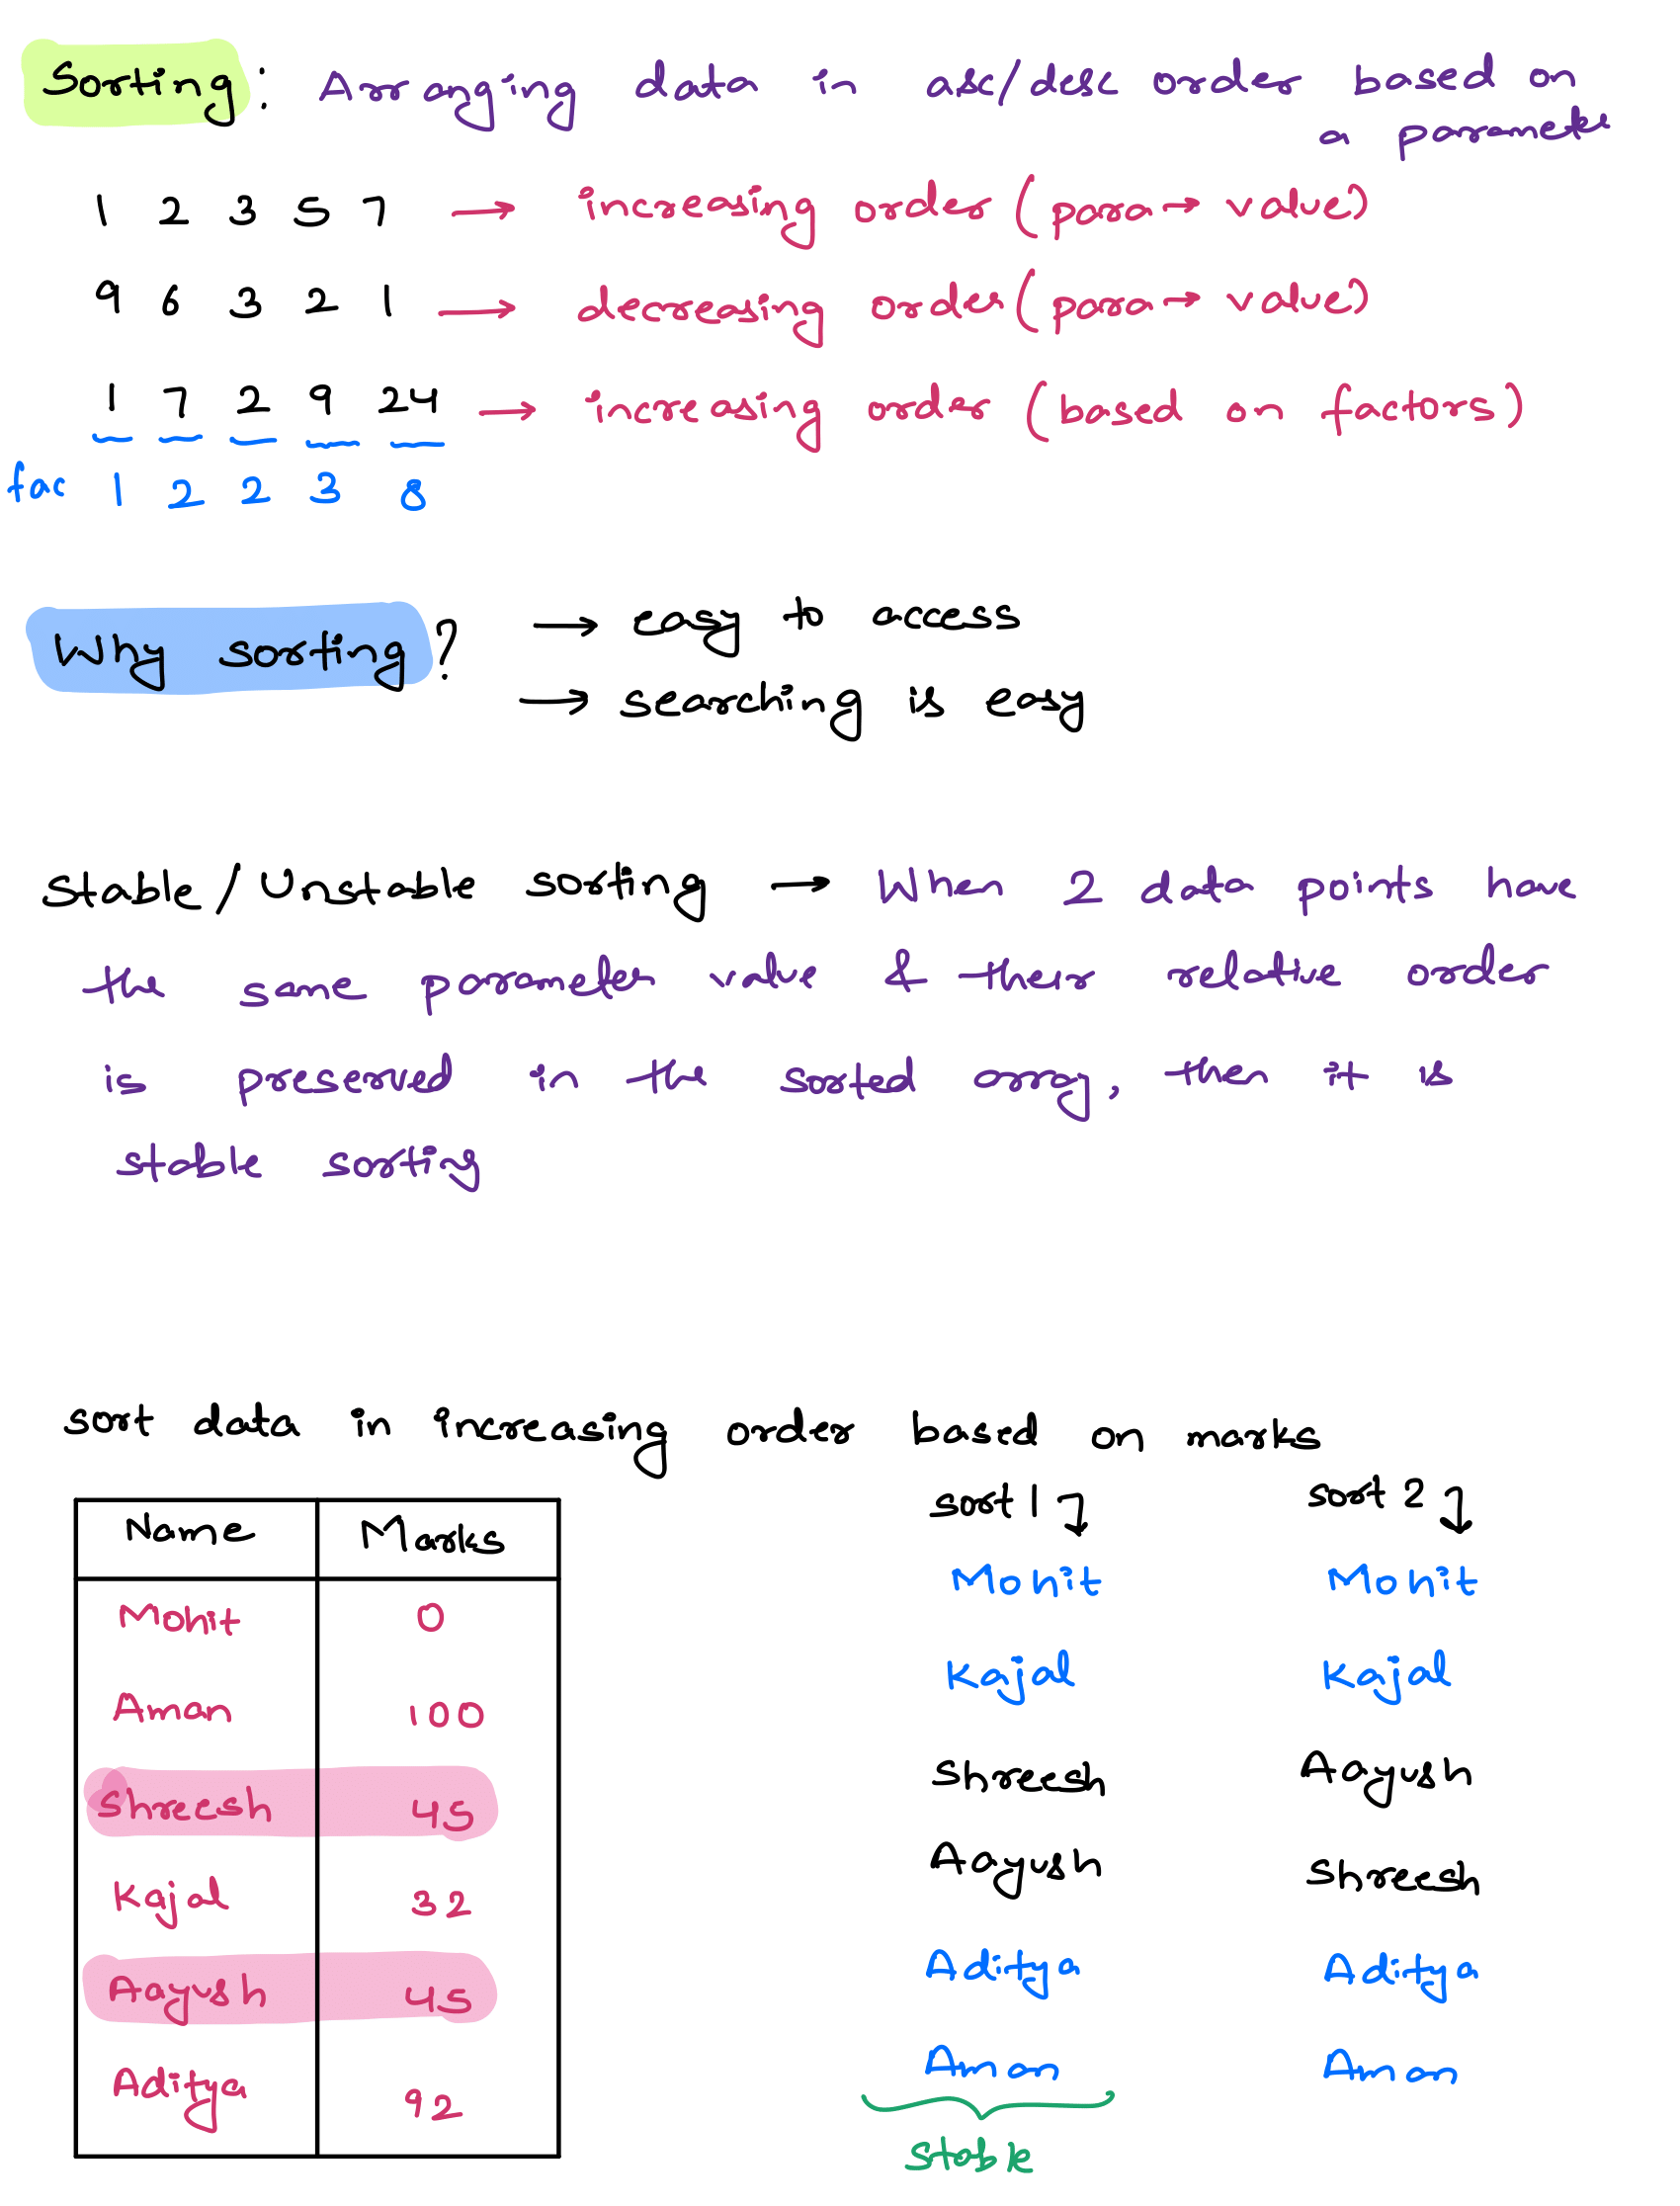 Sorting: Arranging data in asc/desc order based on
a parameter
1 2 3 5 7 → increasing order (para → value)
9 6 3 2 1 → decreasing order (para → value)
1 7 2 9 24 → increasing order (based on factors)
fac 1 2 2 3 8
Why sorting? → easy to access
→ searching is easy
Stable/Unstable sorting → When 2 data points have
the same parameter value & their relative order
is preserved in the sorted array, then it is
stable sorting
sort data in increasing order based on marks
Name Marks
Mohit 0
Aman 100
Shreesh 45
Kajal 32
Aayush 45
Aditya 92
sort 1
Mohit
Kajal
Shreesh
Aayush
Aditya
Aman
stable
sort 2
Mohit
Kajal
Aayush
Shreesh
Aditya
Aman